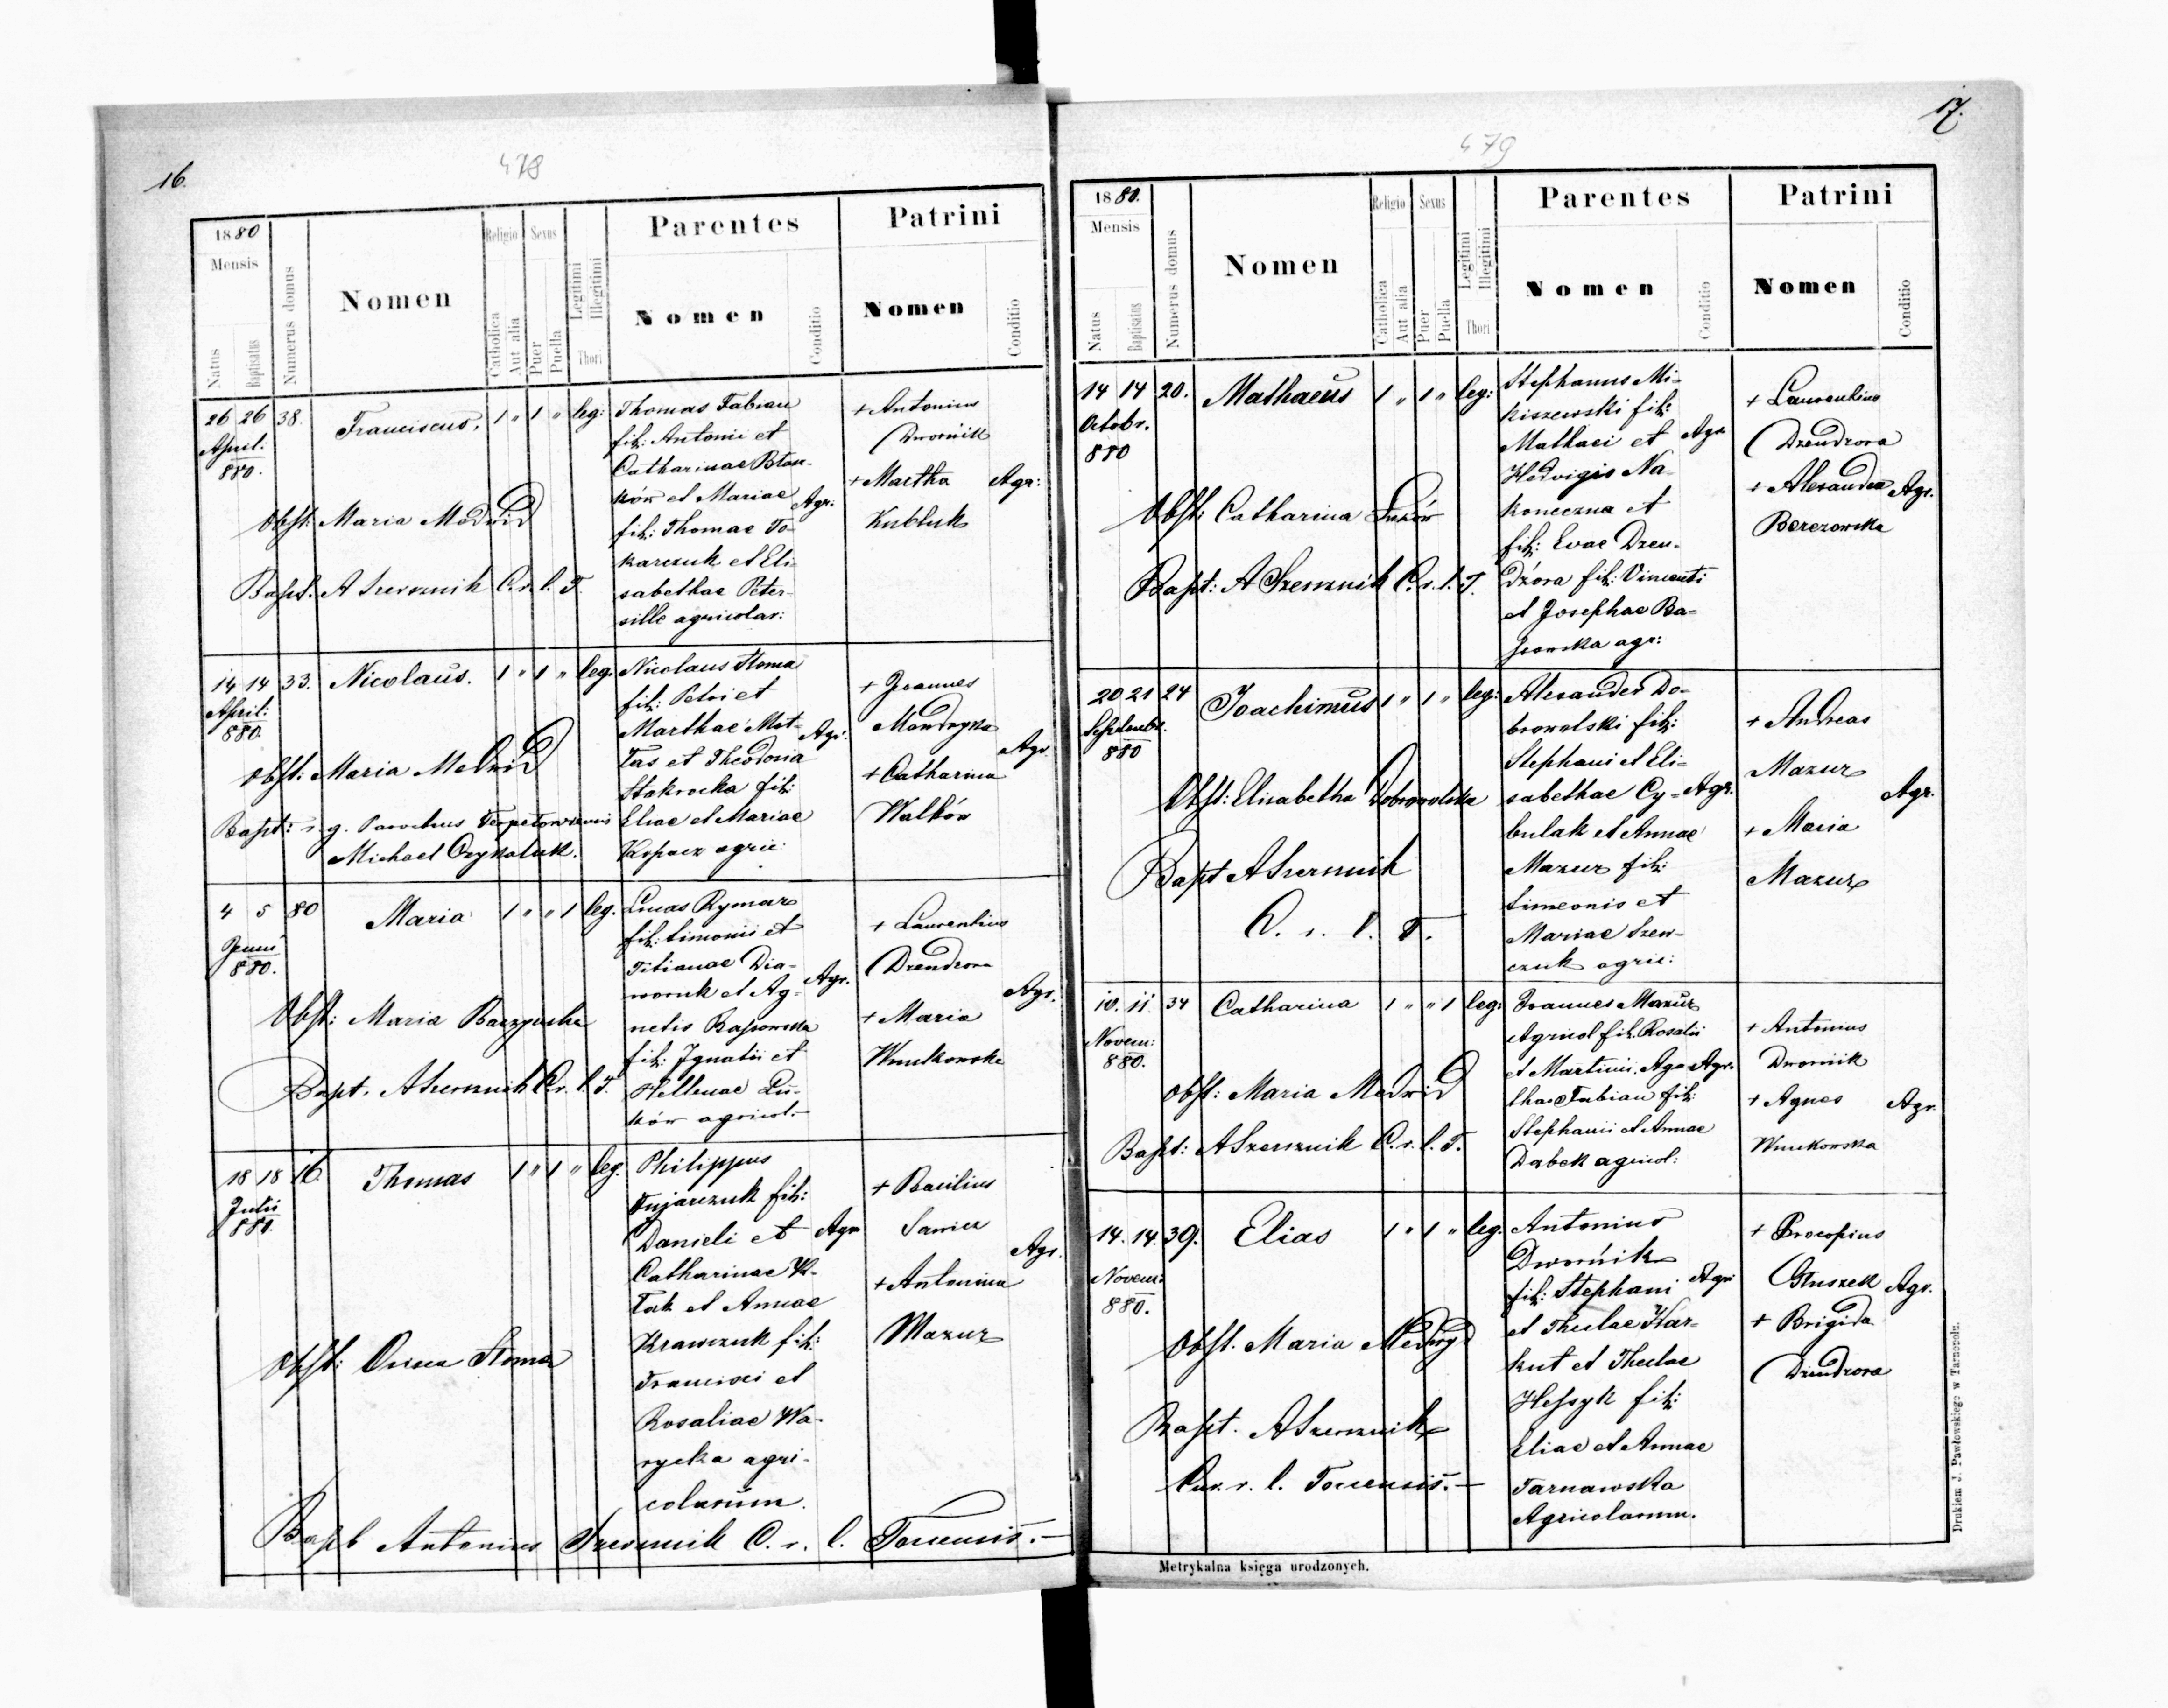 16.
478
1880
Mensis
Natus
Baptisatus
Numerus domus
Nomen
Religio
Catholica
Aut alia
Sexus
Puer
Puella
Legitimi
Illegitimi
Thori
Parentes
Nomen
Conditio
Patrini
Nomen
Conditio
26 26 38. Franciscus. 1 " 1 " leg:
April:
880.
Obst: Maria Medwid
Bapt. A Szersznik C. r. l. T.
Thomas Fabian
fil: Antonii et
Catharinae
ków et Mariae
fil: Thomae To-
karczuk et Eli-
sabethae Peter-
sille agricolar:
Agr:
+ Antonius
Dwornik
+ Martha
Kubluk
Agr:
14 14 33. Nicolaus. 1 " 1 " leg.
April:
880.
Obst: Maria Medwid
Bapt: r. g. Parochus
Michael
Nicolaus Słoma
fil: Petri et
Marthae Mat-
Tas et Theodosia
fil:
Eliae et Mariae
agric:
Agr.
+ Joannes
Mandryka
+ Catharina
Walków
Agr.
4 5 80 Maria 1 " " 1 leg.
Junii
880.
Obst: Maria
Bapt. A Szersznik C. r. l. T.
Lucas Rymar
fil: Simonii et
Titianae Dia-
et Ag-
netis
fil: Ignatii et
Hellenae Lu-
ków agricol.-
Agr.
+ Laurentius
Dzendzora
+ Maria
Wnukowska
Agr.
18 18 16. Thomas 1 " 1 " leg.
Julii
880.
Obst: Słoma
Philippus
fil:
Danieli et
Catharinae
et Annae
Krawczuk fil:
Francisci et
Rosaliae Wa-
rycka agri-
colarum.
Agr
+ Basilius
Sawicz
+ Antonina
Mazur
Agr.
Bapt Antonius Szersznik C. r. l. Toucensis.-
17.
479
1880.
Mensis
Natus
Baptisatus
Numerus domus
Nomen
Religio
Catholica
Aut alia
Sexus
Puer
Puella
Legitimi
Illegitimi
Thori
Parentes
Nomen
Conditio
Patrini
Nomen
Conditio
14 14 20. Mathaeus 1 " 1 " leg:
Octobr.
880
Obst: Catharina Łuków
Bapt: A Szersznik C. r. l. T.
Stephanus Mi-
kiszewski fil:
Mathaei et
Hedvigis Na-
koneczna et
fil: Evae Dzen-
dzora fil: Vincenti
et Josephae Ba-
agr:
Agr
+ Laurentius
Dzendzora
+ Alexandra
Berezowska
Agr.
20 21 24 Joachimus 1 " 1 " leg:
Septembr.
880
Obst: Elisabetha Dobrowolska
Bapt A Szersznik
C. r. l. T.
Alexander Do-
browolski fil:
Stephani et Eli-
sabethae Cy-
bulak et Annae
Mazur fil:
Simeonis et
Mariae Szew-
czuk agric:
Agr.
+ Andreas
Mazur
+ Maria
Mazur
Agr.
10. 11. 34 Catharina 1 " " 1 leg:
Novem:
880.
Obst: Maria Medwid
Bapt: A Szersznik C. r. l. T.
Joannes Mazur
Agricol fil: Rosalii
et Martini. Aga-
thae Fabian fil:
Stephanii et Annae
Dąbek agricol:
Agr.
+ Antonius
Dwornik
+ Agnes
Wnukowska
Agr.
14. 14. 39. Elias 1 " 1 " leg.
Novem:
880.
Obst. Maria Medwyd
Bapt. A Szersznik
Cur. r. l. Toucensis.-
Antonius
Dwornik
fil: Stephani
et Theclae Har-
kut et Theclae
Hessyk fil:
Eliae et Annae
Tarnawska
Agricolarum.
Agr
+ Procopius
Głuszek
+ Brigida
Dzendzora
Agr.
Metrykalna księga urodzonych.
Drukiem J. Pawłowskiego w Tarnopolu.